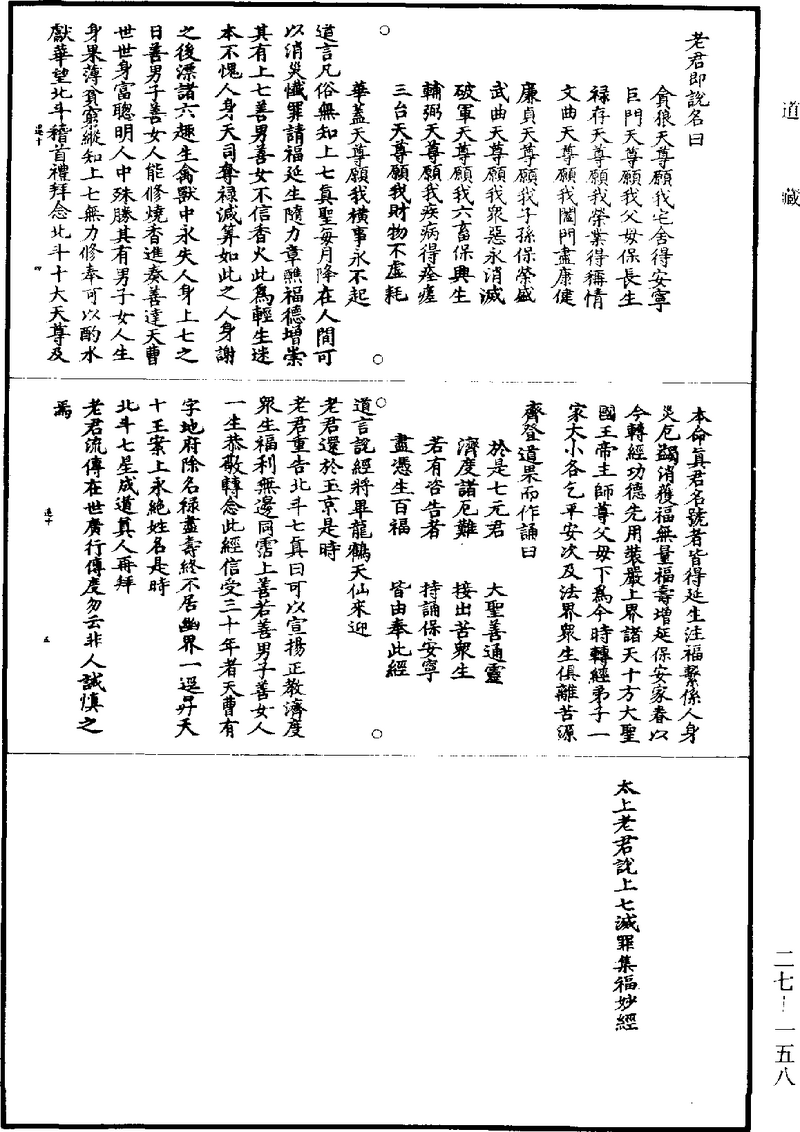 道藏
老君即說名曰
貪狼天尊願我宅舍得安寧
巨門天尊願我父母保長生
祿存天尊願我榮業得稱情
文曲天尊願我闔門盡康健
廉貞天尊願我子孫保榮盛
武曲天尊願我衆惡永消滅
破軍天尊願我六畜保興生
輔弼天尊願我疾病得痊瘥
三台天尊願我財物不虛耗
華蓋天尊願我橫事永不起
道言凡俗無知上七眞聖每月降在人間可
以消災懺罪請福延生隨力章醮福德增崇
其有上七善男善女不信香火此爲輕生迷
本不愧人身天司奪祿減筭如此之人身謝
之後漂諸六趣生禽獸中永失人身上七之
日善男子善女人能修燒香進奏善達天曹
世世身富聰明人中殊勝其有男子女人生
身果薄貧窮縱知上七無力修奉可以酌水
獻華望北斗稽首禮拜念北斗十大天尊及
本命眞君名號者皆得延生注福繫係人身
災厄蠲消獲福無量福壽增延保安家眷以
今轉經功德先用裝嚴上界諸天十方大聖
國王帝主師尊父母下爲今時轉經弟子一
家大小各乞平安次及法界衆生俱離苦源
齊登道果而作誦曰
於是七元君　大聖善通靈
濟度諸厄難　接出苦衆生
若有咨告者　持誦保安寧
盡憑生百福　皆由奉此經
道言說經將畢龍鶴天仙來迎
老君還於玉京是時
老君重告北斗七眞曰可以宣揚正教濟度
衆生福利無邊同霑上善若善男子善女人
一生恭敬轉念此經信受三十年者天曹有
字地府除名祿盡壽終不居幽界一逕昇天
十王案上永絕姓名是時
北斗七星成道眞人再拜
老君流傳在世廣行傳度勿云非人誡慎之
焉
太上老君說上七滅罪集福妙經
二七－一五八